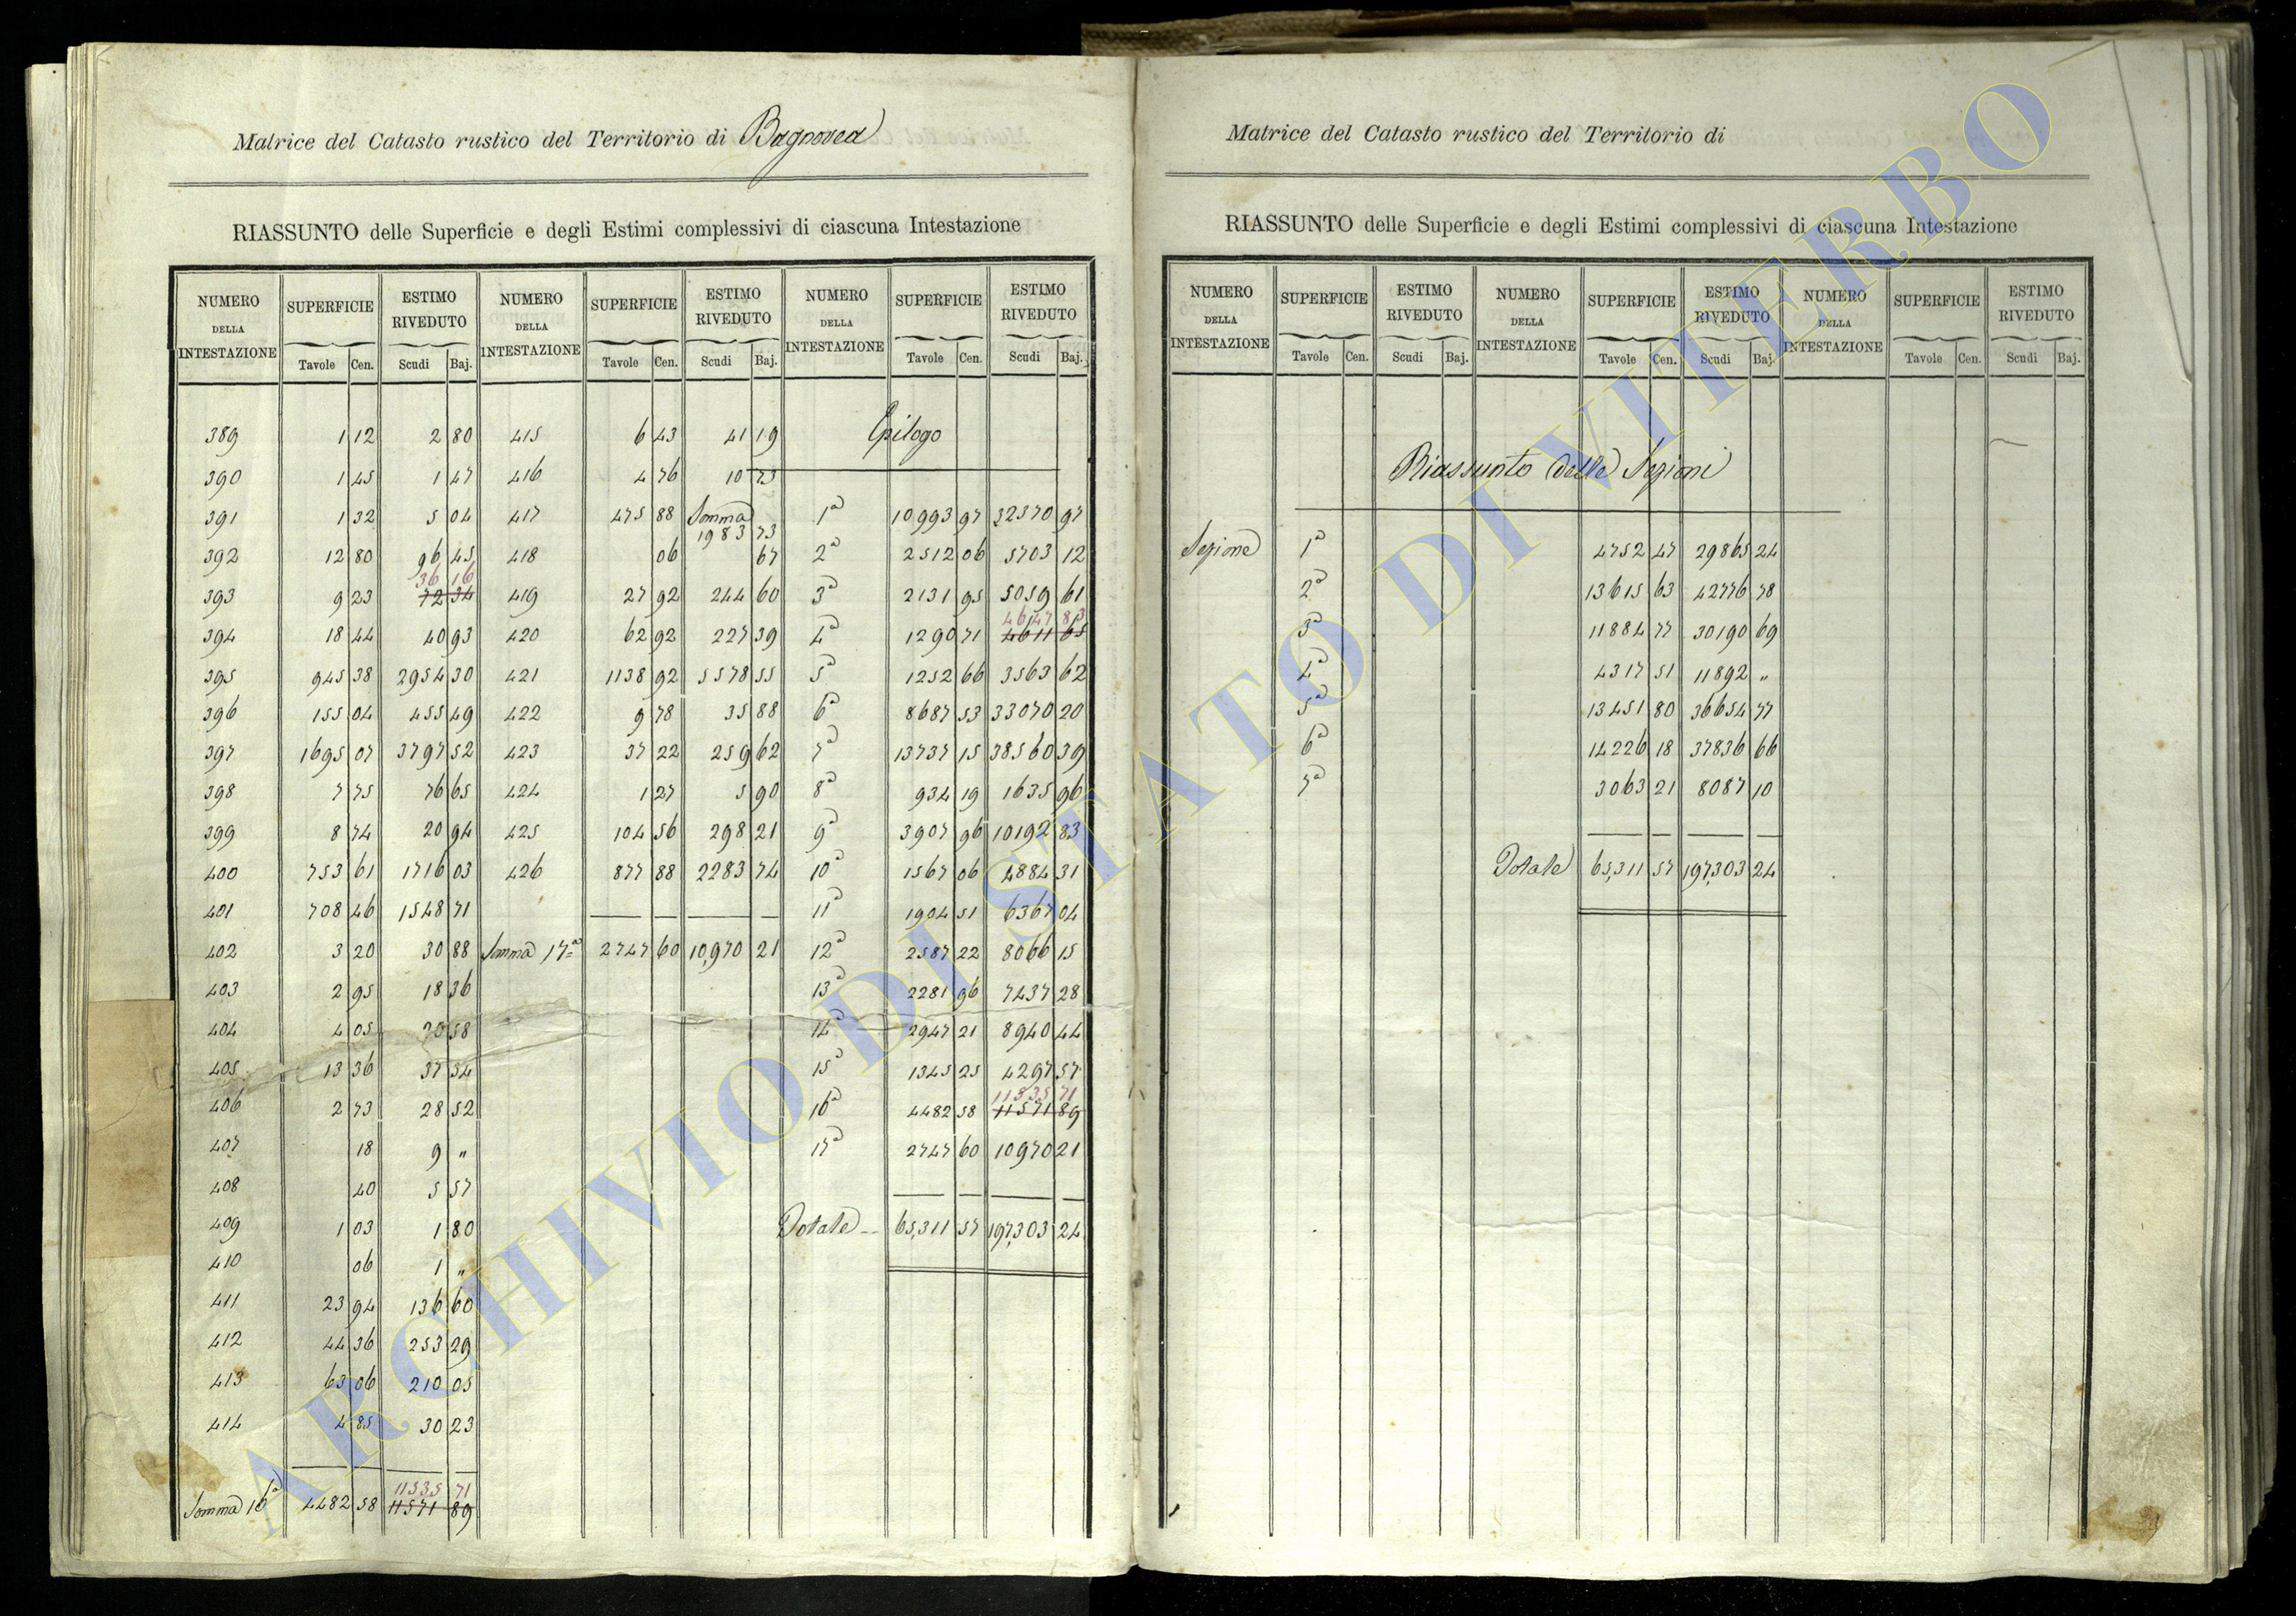 Matrice del Catasto rustico del Territorio di Bagnorea
RIASSUNTO delle Superficie e degli Estimi complessivi di ciascuna Intestazione
NUMERO DELLA INTESTAZIONE SUPERFICIE ESTIMO RIVEDUTO NUMERO DELLA INTESTAZIONE SUPERFICIE ESTIMO RIVEDUTO NUMERO DELLA INTESTAZIONE SUPERFICIE ESTIMO RIVEDUTO
Tavole Cen. Scudi Baj. Tavole Cen. Scudi Baj. Tavole Cen. Scudi Baj.
389 1 12 2 80 415 6 43 41 19 Epilogo
390 1 45 1 47 416 4 76 10 73
391 1 32 5 04 417 475 88 Somma 1983 73 1a 10,993 97 32370 97
392 12 80 96 45 418 06 67 2a 2512 06 5703 12
36 16
393 9 23 72 34 419 27 92 244 60 3a 2131 95 5059 61
4647 83
394 18 44 40 93 420 62 92 227 39 4a 1290 71 4611 65
395 945 38 2954 30 421 1138 92 5578 55 5a 1252 66 3563 62
396 155 04 455 49 422 9 78 35 88 6a 8687 53 33070 20
397 1695 07 3797 52 423 37 22 259 62 7a 13737 15 38560 39
398 7 75 76 65 424 1 27 5 90 8a 934 19 1635 96
399 8 74 20 94 425 104 56 298 21 9a 3907 96 10192 83
400 753 61 1716 03 426 877 88 2283 74 10a 1567 06 4884 31
401 708 46 1548 71 11a 1904 51 6367 04
402 3 20 30 88 Somma 17a 2747 60 10,970 21 12a 2587 22 8066 15
403 2 95 18 36 13a 2281 96 7437 28
404 4 05 20 58 14a 2947 21 8940 44
405 13 36 37 34 15a 1345 25 4297 57
11535 71
406 2 73 28 52 16a 4482 58 11571 89
407 18 9 „ 17a 2747 60 10970 21
408 40 5 57
409 1 03 1 80 Totale 65,311 57 197,303 24
410 06 1 „
411 23 94 136 60
412 44 36 253 29
413 63 06 210 05
414 4 85 30 23
11535 71
Somma 16a 4482 58 11571 89
Matrice del Catasto rustico del Territorio di
RIASSUNTO delle Superficie e degli Estimi complessivi di ciascuna Intestazione
NUMERO DELLA INTESTAZIONE SUPERFICIE ESTIMO RIVEDUTO NUMERO DELLA INTESTAZIONE SUPERFICIE ESTIMO RIVEDUTO NUMERO DELLA INTESTAZIONE SUPERFICIE ESTIMO RIVEDUTO
Tavole Cen. Scudi Baj. Tavole Cen. Scudi Baj. Tavole Cen. Scudi Baj.
Riassunto delle Sezioni
Sezione 1a 4752 47 29865 24
2a 13615 63 42776 78
3a 11884 77 30190 69
4a 4317 51 11892 „
5a 13451 80 36654 77
6a 14226 18 37836 66
7a 3063 21 8087 10
Totale 65,311 57 197,303 24
ARCHIVIO DI STATO DI VITERBO